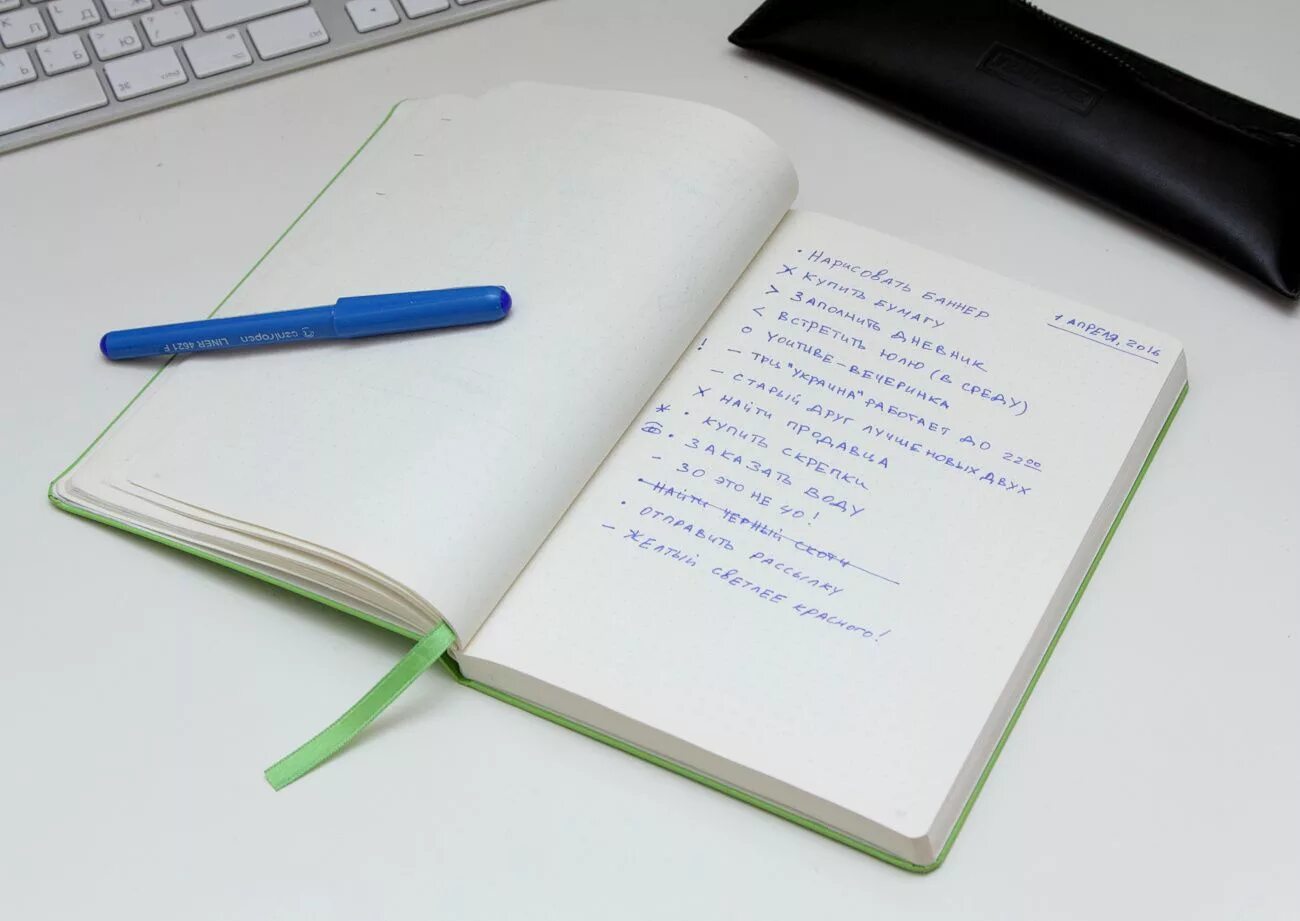 1 АПРЕЛЯ, 2016
• НАРИСОВАТЬ БАННЕР
× КУПИТЬ БУМАГУ
> ЗАПОЛНИТЬ ДНЕВНИК
< ВСТРЕТИТЬ ЮЛЮ (В СРЕДУ)
○ YOUTUBE-ВЕЧЕРИНКА
! – ТРЦ "УКРАИНА" РАБОТАЕТ ДО 22⁰⁰
– СТАРЫЙ ДРУГ ЛУЧШЕ НОВЫХ ДВУХ
× НАЙТИ ПРОДАВЦА
* • КУПИТЬ СКРЕПКИ
• ЗАКАЗАТЬ ВОДУ
– 30 ЭТО НЕ 40!
• НАЙТИ ЧЕРНЫЙ СКОТЧ
• ОТПРАВИТЬ РАССЫЛКУ
– ЖЕЛТЫЙ СВЕТЛЕЕ КРАСНОГО!
centropen
LINER 4621 F